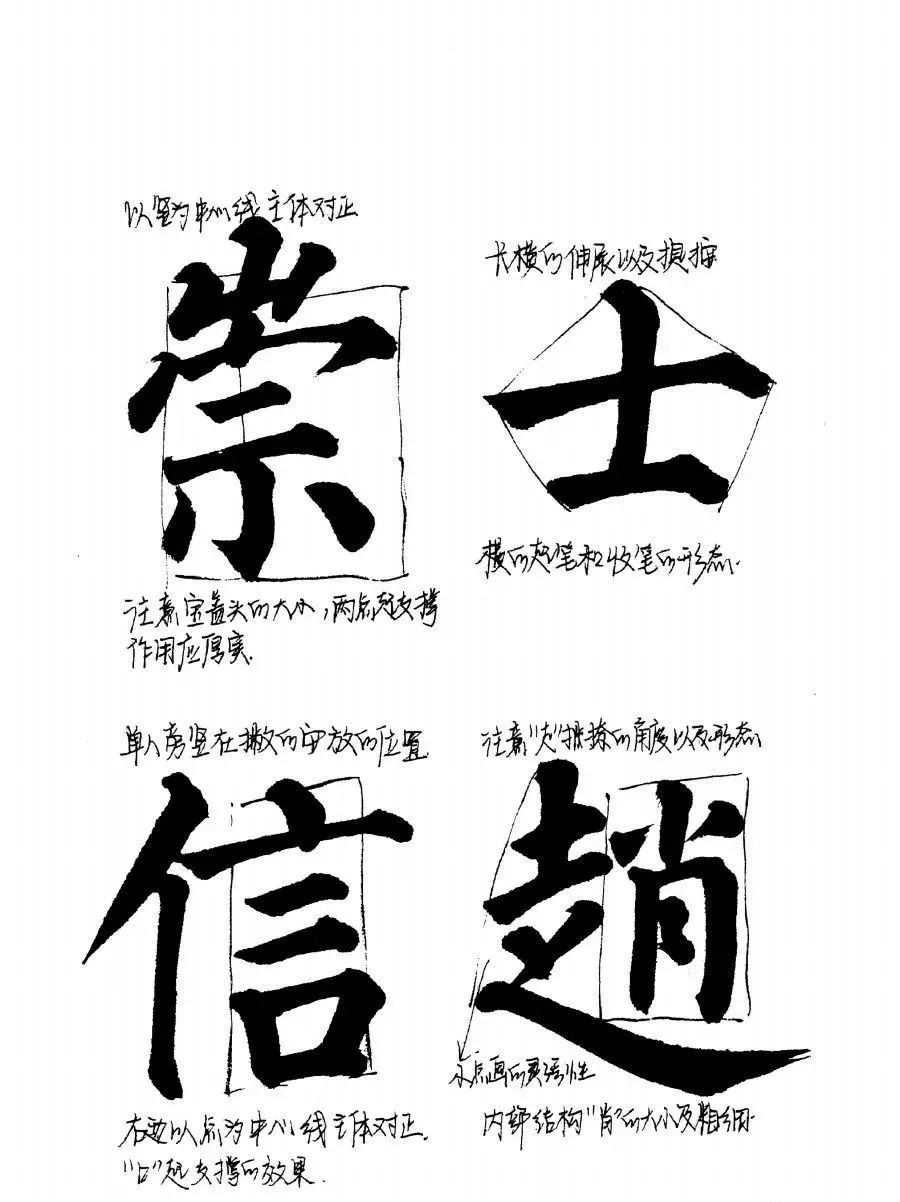 以竖为中心线主体对正
崇
注意宝盖头的大小，两点起支撑
作用应厚实.
长横的伸展以及
士
横的起笔和收笔的形态.
单人旁竖在撇的中放的位置
信
右边以点为中心线主体对正.
"口"起支撑的效果.
注意"走"捺的角度以及形态
趙
小点画的灵活性
内部结构"肖"的大小及粗细.